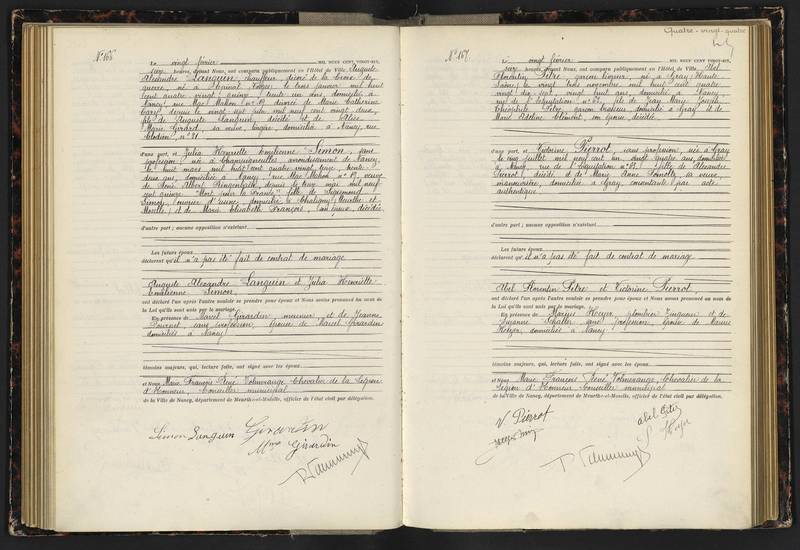 N° 166
Le vingt février MIL NEUF CENT VINGT-SIX,
heures, devant Nous, ont comparu publiquement en l'Hôtel de Ville Auguste
Alexandre Languin, chauffeur, décoré de la Croix de
guerre, né à Epinal, Vosges, le trois janvier mil huit
cent quatre vingt quinze, trente un ans, domicilié à
Nancy, rue Mac Mahon n° 19, divorcé de Marie Catherine
depuis le vingt sept juin mil neuf cent vingt deux,
fils de Auguste Languin, décédé et de Alise
Marie Girard, sa veuve, domiciliée à Nancy, rue
n° 21
d'une part, et Julia Henriette Emilienne Simon, sans
profession, née à Champigneulles, arrondissement de Nancy,
le huit mars mil huit cent quatre vingt treize, trente
deux ans, domiciliée à Nancy, rue Mac Mahon n° 19, veuve
de Louis Albert depuis le trois mai mil neuf
cent quinze "Mort pour la France", fille de Sigismond
Simon, ouvrier d'usine, domicilié à Chaligny, Meurthe et
Moselle, et de Marie Elisabeth François, son épouse, décédée
d'autre part ; aucune opposition n'existant
Les futurs époux
déclarent qu'il n'a pas été fait de contrat de mariage
Auguste Alexandre Languin et Julia Henriette
Emilienne Simon
ont déclaré l'un après l'autre vouloir se prendre pour époux et Nous avons prononcé au nom de
la Loi qu'ils sont unis par le mariage.
En présence de Marcel Girardin, meunier, et de Jeanne
sans profession, épouse de Marcel Girardin
domiciliés à Nancy
témoins majeurs, qui, lecture faite, ont signé avec les époux
et Nous Marie François René Volmerange, Chevalier de la Légion
d'Honneur, Conseiller municipal
de la Ville de Nancy, département de Meurthe-et-Moselle, officier de l'état civil par délégation.
Simon Languin Girardin
Mme Girardin
Quatre-vingt-quatre
N° 167
Le vingt février MIL NEUF CENT VINGT-SIX,
heures, devant Nous, ont comparu publiquement en l'Hôtel de Ville Abel
Florentin Pètre, garçon livreur, né à Gray, Haute
Saône, le vingt trois novembre mil huit cent quatre
vingt dix sept, vingt huit ans, domicilié à Nancy
rue de l'Equitation n° 61, fils de Jean Marie Joseph
Théophile Pètre, garçon brasseur, domicilié à Gray, et de
Marie Adeline Clément, son épouse, décédée
d'une part, et Victorine Pierrot, sans profession, née à Gray
le cinq juillet mil neuf cent un, vingt quatre ans, domiciliée
à Nancy, rue de l'Equitation n° 61, fille de Alexandre
Pierrot, décédé, et de Marie Anne sa veuve,
manouvrière, domiciliée à Gray, consentante par acte
authentique
d'autre part ; aucune opposition n'existant
Les futurs époux
déclarent qu'il n'a pas été fait de contrat de mariage
Abel Florentin Pètre et Victorine Pierrot
ont déclaré l'un après l'autre vouloir se prendre pour époux et Nous avons prononcé au nom de
la Loi qu'ils sont unis par le mariage.
En présence de Marius Hoyer, plombier zingueur et de
Suzanne sans profession, épouse de Marius
Hoyer, domiciliés à Nancy
témoins majeurs, qui, lecture faite, ont signé avec les époux
et Nous Marie François René Volmerange, Chevalier de la
Légion d'Honneur, Conseiller municipal
de la Ville de Nancy, département de Meurthe-et-Moselle, officier de l'état civil par délégation.
V. Pierrot
Abel Pètre
Hoyer